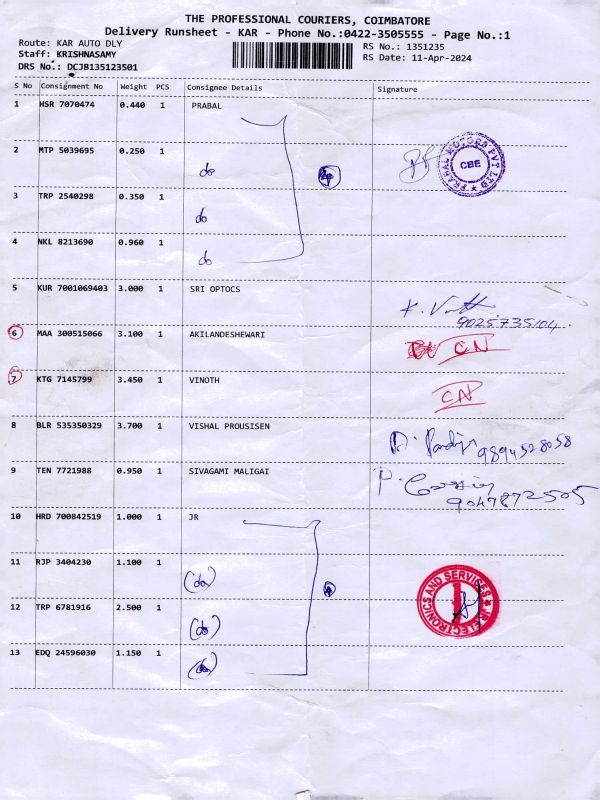 THE PROFESSIONAL COURIERS, COIMBATORE
Delivery Runsheet - KAR - Phone No.:0422-3505555 - Page No.:1
Route: KAR AUTO DLY
RS No.: 1351235
Staff: KRISHNASAMY
RS Date: 11-Apr-2024
DRS No.: DCJB135123501
S No Consignment No Weight PCS Consignee Details Signature
1 HSR 7070474 0.440 1 PRABAL
2 MTP 5039695 0.250 1 do
PRABAL MOTORS PVT LTD
CBE
3 TRP 2540298 0.350 1 do
4 NKL 8213690 0.960 1 do
5 KUR 7001069403 3.000 1 SRI OPTOCS
9025735104
6 MAA 300515066 3.100 1 AKILANDESHEWARI CN
7 KTG 7145799 3.450 1 VINOTH CN
8 BLR 535350329 3.700 1 VISHAL PROUSISEN 9894528058
9 TEN 7721988 0.950 1 SIVAGAMI MALIGAI
9047872505
10 HRD 700842519 1.000 1 JR
11 RJP 3404230 1.100 1 (do)
JR ELECTRONICS AND SERVICES
12 TRP 6781916 2.500 1 (do)
13 EDQ 24596030 1.150 1 (do)